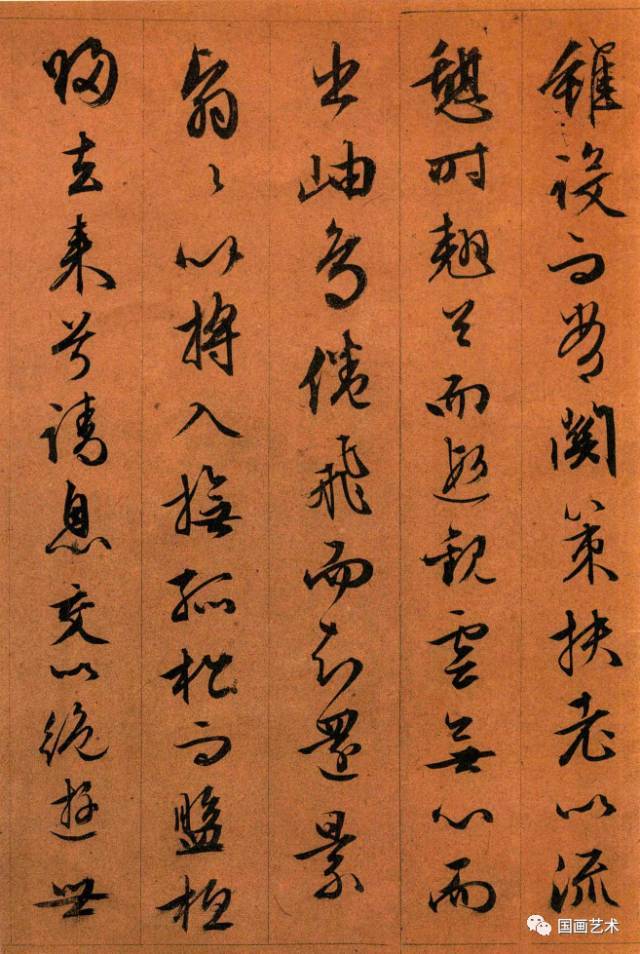 雖設而常關策扶老以流
憇時翹首而遐觀雲無心而
出岫鳥倦飛而知還景
翳〻以將入撫孤松而盤桓
歸去來兮請息交以絕遊世
国画艺术